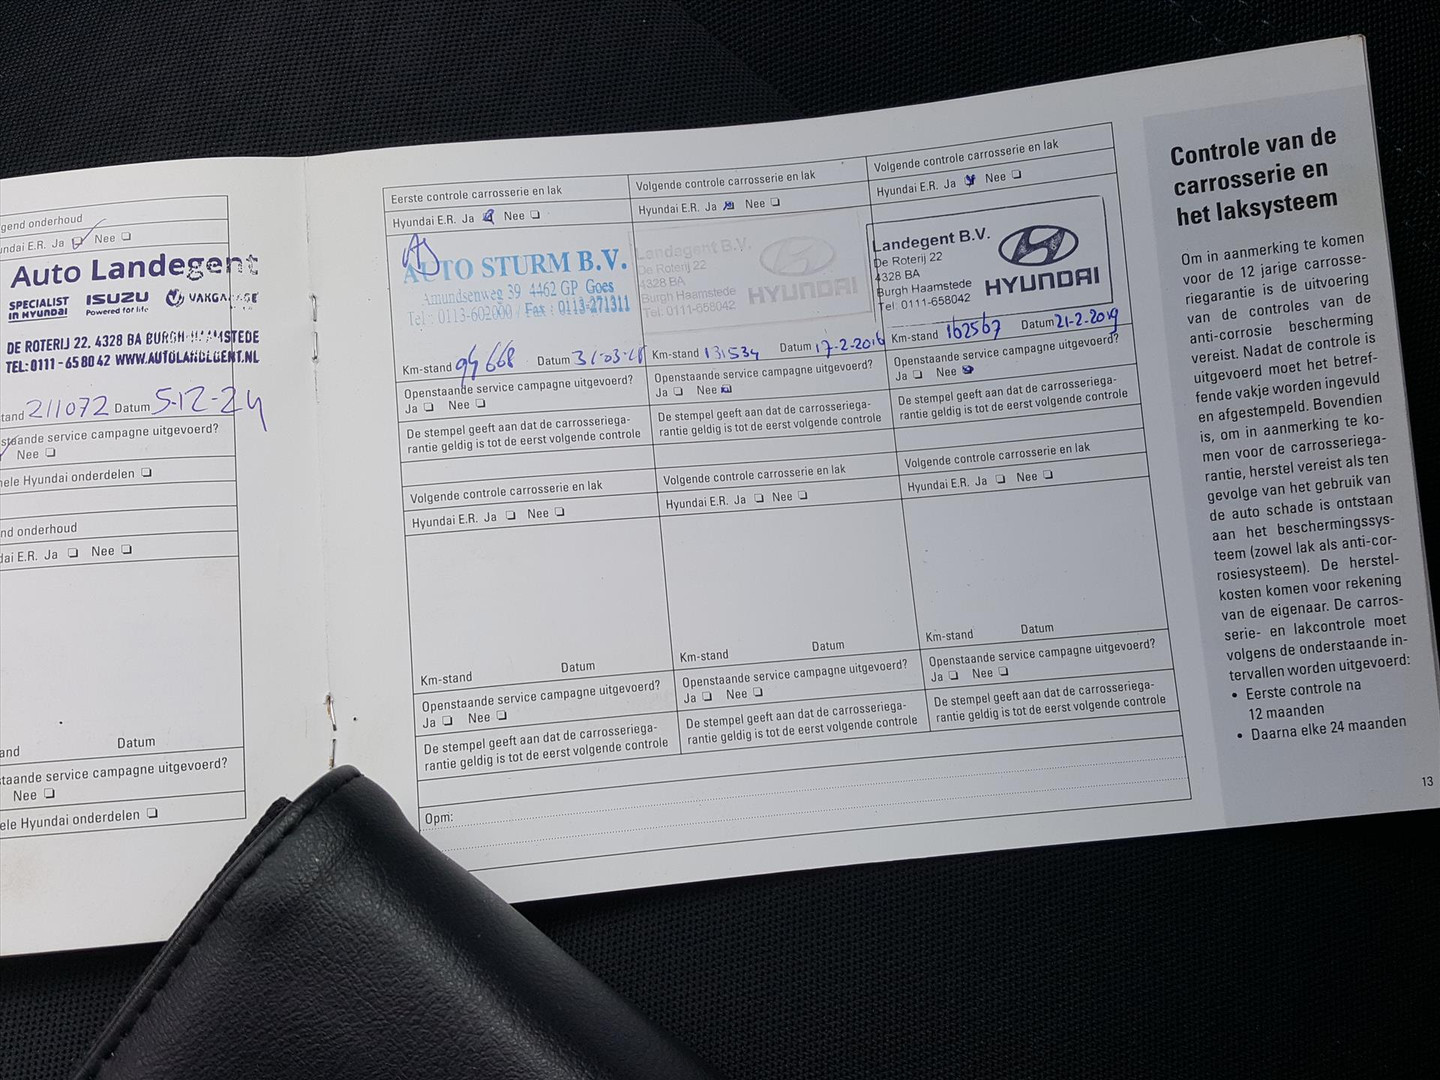 gend onderhoud
undai E.R. Ja Nee
Auto Landegent
SPECIALIST IN HYUNDAI ISUZU Powered for life VAKGARAGE
DE ROTERIJ 22. 4328 BA BURGH-HAAMSTEDE
TEL: 0111 - 65 80 42 WWW.AUTOLANDEGENT.NL
stand 211072 Datum 5-12-24
staande service campagne uitgevoerd?
Nee
nele Hyundai onderdelen
nd onderhoud
dai E.R. Ja Nee
and Datum
staande service campagne uitgevoerd?
Nee
ele Hyundai onderdelen
Eerste controle carrosserie en lak
Hyundai E.R. Ja Nee
AUTO STURM B.V.
Amundsenweg 39 4462 GP Goes
Tel : 0113-602000 / Fax : 0113-271311
Km-stand 94668 Datum
Openstaande service campagne uitgevoerd?
Ja Nee
De stempel geeft aan dat de carrosseriega-
rantie geldig is tot de eerst volgende controle
Volgende controle carrosserie en lak
Hyundai E.R. Ja Nee
Landegent B.V.
De Roterij 22
4328 BA
Burgh Haamstede
Tel. 0111-658042
HYUNDAI
Km-stand 131534 Datum 17-2-2016
Openstaande service campagne uitgevoerd?
Ja Nee
De stempel geeft aan dat de carrosseriega-
rantie geldig is tot de eerst volgende controle
Volgende controle carrosserie en lak
Hyundai E.R. Ja Nee
Landegent B.V.
De Roterij 22
4328 BA
Burgh Haamstede
Tel. 0111-658042
HYUNDAI
Km-stand 162567 Datum 21-2-2019
Openstaande service campagne uitgevoerd?
Ja Nee
De stempel geeft aan dat de carrosseriega-
rantie geldig is tot de eerst volgende controle
Volgende controle carrosserie en lak
Hyundai E.R. Ja Nee
Km-stand Datum
Openstaande service campagne uitgevoerd?
Ja Nee
De stempel geeft aan dat de carrosseriega-
rantie geldig is tot de eerst volgende controle
Volgende controle carrosserie en lak
Hyundai E.R. Ja Nee
Km-stand Datum
Openstaande service campagne uitgevoerd?
Ja Nee
De stempel geeft aan dat de carrosseriega-
rantie geldig is tot de eerst volgende controle
Volgende controle carrosserie en lak
Hyundai E.R. Ja Nee
Km-stand Datum
Openstaande service campagne uitgevoerd?
Ja Nee
De stempel geeft aan dat de carrosseriega-
rantie geldig is tot de eerst volgende controle
Opm:
Controle van de
carrosserie en
het laksysteem
Om in aanmerking te komen
voor de 12 jarige carrosse-
riegarantie is de uitvoering
van de controles van de
anti-corrosie bescherming
vereist. Nadat de controle is
uitgevoerd moet het betref-
fende vakje worden ingevuld
en afgestempeld. Bovendien
is, om in aanmerking te ko-
men voor de carrosseriega-
rantie, herstel vereist als ten
gevolge van het gebruik van
de auto schade is ontstaan
aan het beschermingssys-
teem (zowel lak als anti-cor-
rosiesysteem). De herstel-
kosten komen voor rekening
van de eigenaar. De carros-
serie- en lakcontrole moet
volgens de onderstaande in-
tervallen worden uitgevoerd:
• Eerste controle na
12 maanden
• Daarna elke 24 maanden
13